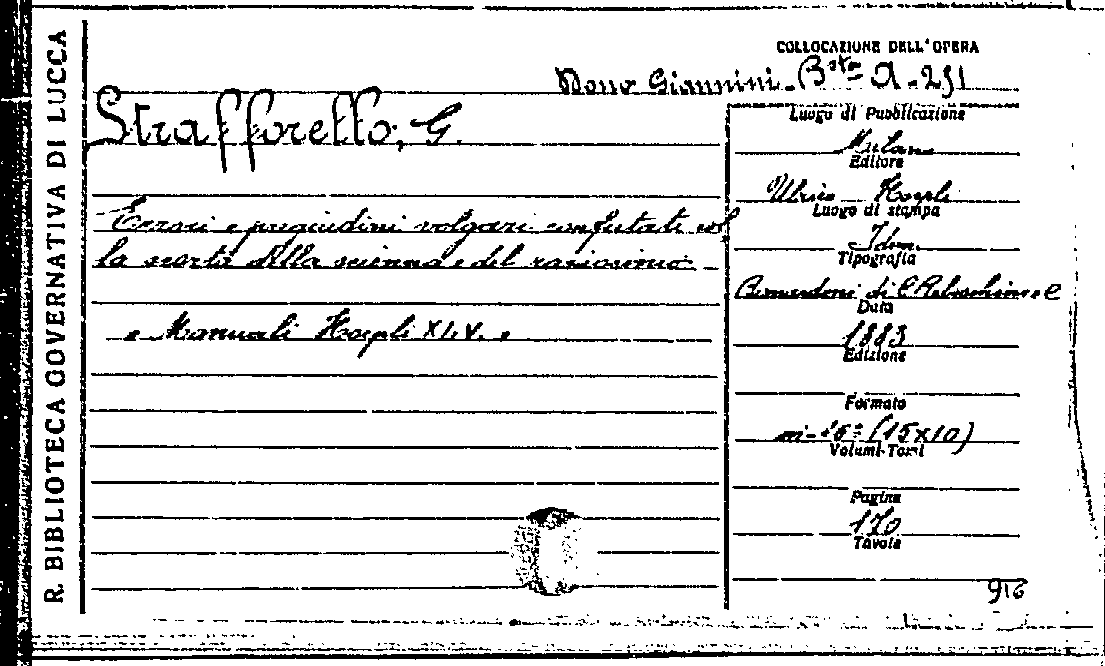 R. BIBLIOTECA GOVERNATIVA DI LUCCA
COLLOCAZIONE DELL'OPERA
Dono Giannini - Bsta A-251
Strafforello, G.
Errori e pregiudizi volgari confutati col
la scorta della scienza e del raziocinio
"Manuali Hoepli XLV."
Luogo di Pubblicazione
Milano
Editore
Ulrico Hoepli
Luogo di stampa
Idem
Tipografia
di
Data
1883
Edizione
Formato
in-16º (15x10)
Volumi-Tomi
Pagine
170
Tavole
916